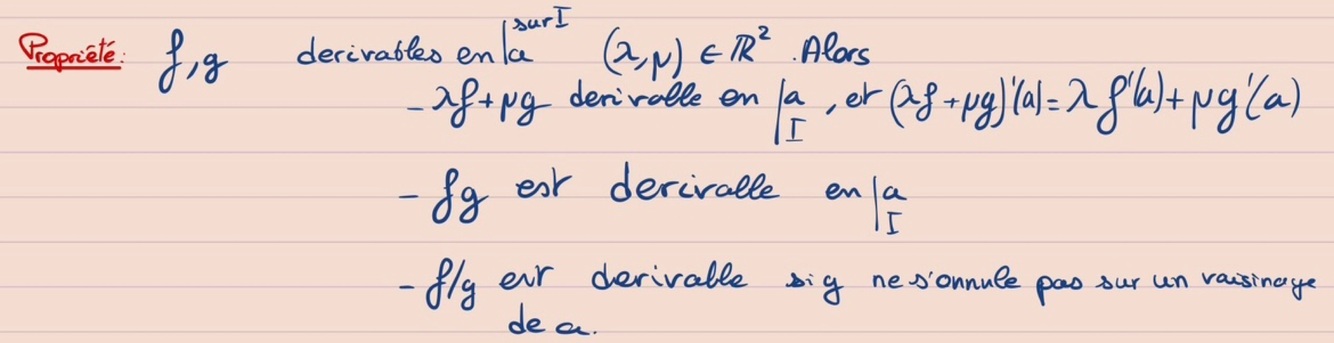 Propriété: f,g derivables en | a sur I (λ,μ) ∈ ℝ². Alors
- λf+μg derivable en | a I, et (λf+μg)'(a) = λf'(a)+μg'(a)
- fg est derivable en | a I
- f/g est derivable si g ne s'annule pas sur un voisinage
de a.